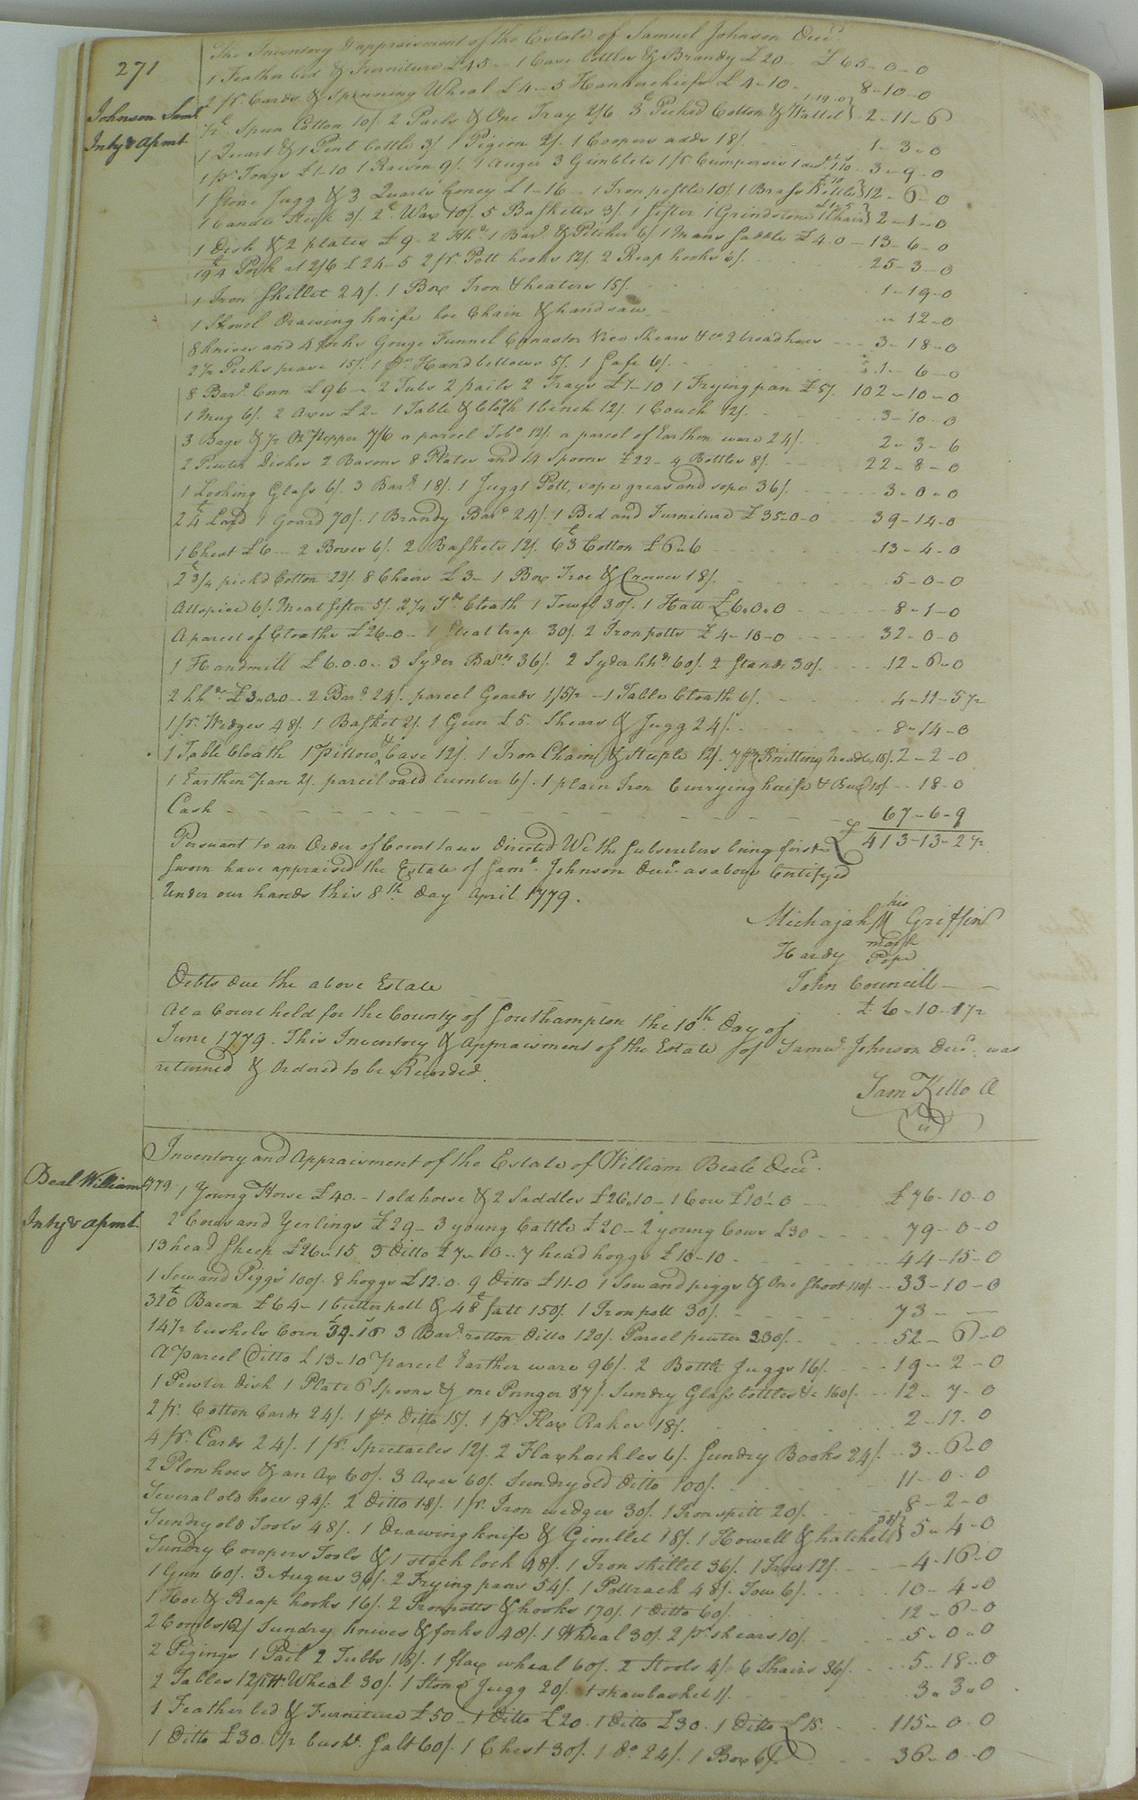 271
The Inventory & appraisment of the Estate of Samuel Johnson Decd.
1 Feather bed & Furniture £45 - 1 Case bottles & Brandy £20 - £65-0-0
2 pr. Cards & Spinning Wheal £4-5 Hankerchiefs £4-10 8-10-0
Johnson Saml
Inty & apmt.
Spun Cotton 10/. 2 Pails & One Tray 2/6 Picked Cotton & Wallet 2-11-6
1 Quart & 1 Pint bottle 3/ 1 Pigeon 2/. 1 Coopers adds 18/. 1-3-0
1 pr. Tongs £1-10 1 Raison 9/. 1 Auger 3 Gimblets 1 pr. Cumpasses 3-9-0
1 Stone Jugg & 3 Quarts honey £1-16 - 1 Iron pestle 10/. 1 Brass Kettle 12-6-0
1 Candle Stick 3/. Wax 10/. 5 Basketts 3/. 1 Sifter 1 Grindstone 1 Chair 2-1-0
1 Dish & 2 plates £9-2 1 Barl. & Pitcher 6/ 1 Mans Saddle £4.0 - 13-6-0
194 Pork at 2/6 £24-5 2 pr. Pott hooks 12/. 2 Reap hooks 6/. 25-3-0
1 Iron Skillet 24/. 1 Box Iron & heaters 15/. 1-19-0
1 Shovel Drawing knife hoe Chain & handsaw - 12-0
8 knives and 4 forks Gouge Funnel Canastor Vice Shears & 2 broad hoes 3-18-0
2½ Pecks pease 15/. 1 pr. Hand bellows 5/. 1 Safe 6/. 1-6-0
8 Barl. Corn £96 - 2 Tubs 2 pails 2 Trays £1-10 1 Frying pan £5/. 102-10-0
1 Mug 6/. 2 Axes £2 - 1 Table & Cloth 1 bench 12/. 1 Couch 12/. 3-10-0
3 Bags & ½ Pepper 7/6 a parcel Tobo. 12/. a parcel of Earthen ware 24/. 2-3-6
2 Pewter Dishes 2 Basons 8 Plates and 14 Spoons £22 - 4 Bottles 8/. 22-8-0
1 Looking Glass 6/. 3 Barl. 18/. 1 Jugg 1 Pott, sope greas and sope 36/. 3-0-0
24 Lard 1 Goard 70/. 1 Brandy Barl. 24/. 1 Bed and Furniture £35-0-0 39-14-0
1 Chest £6 - 2 Boxes 6/. 2 Baskets 12/. 63 Cotton £6-6 13-4-0
2¾ pickd Cotton 22/. 8 Chairs £3 - 1 Box Iron & 18/. 5-0-0
Allspice 6/. Meal sifter 5/. 2¼ Yds Cloath 1 Towel 30/. 1 Hatt £6.0.0 8-1-0
A parcel of Cloaths £26-0 - 1 Steal trap 30/. 2 Iron potts £4-10-0 32-0-0
1 Handmill £6.0.0 - 3 Syder Barls 36/. 2 Syder hhds 60/. 2 Stands 30/. 12-6-0
2 hhds £3.0.0 - 2 Barl 24/. parcel Goards 1/5½ - 1 Table Cloath 6/. 4-11-5½
1 pr. Wedges 48/. 1 Basket 2/. 1 Gun £5. Shears & Jugg 24/. 8-14-0
1 Table Cloath 1 Pillow Case 12/. 1 Iron Chain & Steeple 12/. Knitting needles 18/. 2-2-0
1 Earthen Pan 2/. parcel oald lumber 6/. 1 plain Iron Currying knife 10/ - 18-0
Cash 67-6-9
£413-13-2½
Persuant to an Order of Court to us Directed We the Subscribers being first
Sworn have appraised the Estate of Saml. Johnson Decd. as above Certifyed
Under our hands this 8th. Day April 1779.
his
Michajah M Griffin
mark
Hardy Pope
John Councill
Debts due the above Estate £6-10-1½
At a Court held for the County of Southampton the 10th Day of
June 1779. This Inventory & Appraisment of the Estate of Samul. Johnson Decd. was
returned & Ordered to be Recorded.
Sam Kello
Inventory and Appraisment of the Estate of William Beale Decd.
Beal William
Inty & apmt.
1779. 1 Young Horse £40. - 1 old horse & 2 Saddles £26.10 - 1 Cow £10.0 £76-10-0
2 Cows and Yerlings £29 - 3 young Cattle £20 - 2 young Cows £30 79-0-0
13 head Sheep £26-15 5 Ditto £7-10 - 7 head hoggs £10-10 44-15-0
1 Sow and Piggs 100/. 8 hoggs £12.0. 9 Ditto £11-0 1 Sow and piggs & One Shoot 110/. 33-10-0
320 Bacon £64 - 1 butter pott & 48 Salt 150/. 1 Iron pott 30/. 73 -
14½ bushels Corn 3 Barl. rotten Ditto 120/. Parcel pewter 230/. 52-6-0
A Parcel Ditto £13-10 Parcel Earthen ware 96/. 2 Bottle Juggs 16/. 19-2-0
1 Pewter Dish 1 Plate 6 Spoons & one 87/. Sundry Glass bottles &c 160/. 12-7-0
2 pr. Cotton Cards 24/. 1 pr Ditto 15/. 1 pr. Flax Rakes 18/. 2-17-0
4 pr. Cards 24/. 1 pr. Spectacles 12/. 2 Flaxhackles 6/. Sundry Books 24/. 3-6-0
2 Plow hoes & an Ax 60/. 3 Axes 60/. Sundry old Ditto 100/. 11-0-0
Several old hoes 94/. 2 Ditto 18/. 1 pr. Iron wedges 30/. 1 Iron spitt 20/. 8-2-0
Sundry old Tools 48/. 1 Drawing knife & Gimblet 18/. 1 Howell & hatchet 5-4-0
Sundry Coopers Tools & 1 stock lock 48/. 1 Iron skillet 36/. 12/. 4-16-0
1 Gun 60/. 3 Augers 36/. 2 Frying pans 54/. 1 Pottrack 48/. Tow 6/. 10-4-0
1 Hoe & Reap hooks 16/. 2 Iron potts & hooks 170/. 1 Ditto 60/. 12-6-0
2 Combs Sundry knives & forks 48/. 1 Wheal 30/. 2 pr. shears 10/. 5-0-0
2 Pigings 1 Pail 2 Tubbs 18/. 1 flax wheal 60/. 2 Stools 4/. 6 Chairs 36/. 5-18-0
2 Tables 12/. Wheal 30/. 1 Stone Jugg 20/. 1 strawbasket 1/. 3-3-0
1 Feather bed & Furniture £50 - 1 Ditto £20. 1 Ditto £30. 1 Ditto £15 115-0-0
1 Ditto £30. ½ bushl. Salt 60/. 1 Chest 30/. 1 Do. 24/. 1 Box 6/. 36-0-0